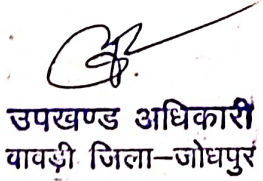 उपखण्ड अधिकारी
वावड़ी जिला–जोधपुर